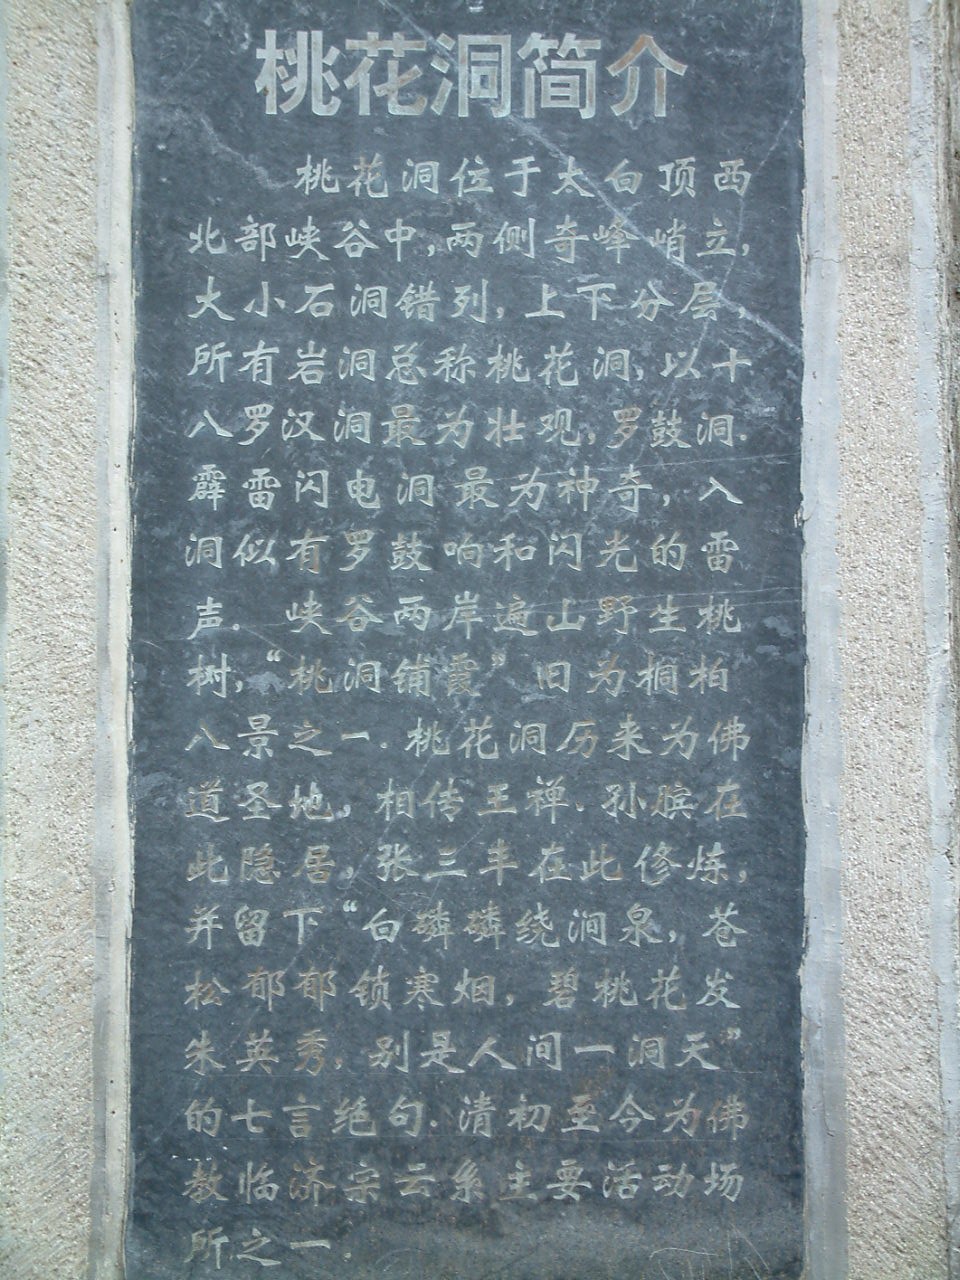 桃花洞简介
桃花洞位于太白顶西
北部峡谷中,两侧奇峰峭立,
大小石洞错列,上下分层,
所有岩洞总称桃花洞,以十
八罗汉洞最为壮观,罗鼓洞.
霹雷闪电洞最为神奇,入
洞似有罗鼓响和闪光的雷
声. 峡谷两岸遍山野生桃
树,“桃洞铺霞”旧为桐柏
八景之一.桃花洞历来为佛
道圣地,相传王禅.孙膑在
此隐居,张三丰在此修炼,
并留下“白磷磷绕涧泉,苍
松郁郁锁寒烟,碧桃花发
朱英秀,别是人间一洞天”
的七言绝句.清初至今为佛
教临济宗云系主要活动场
所之一.